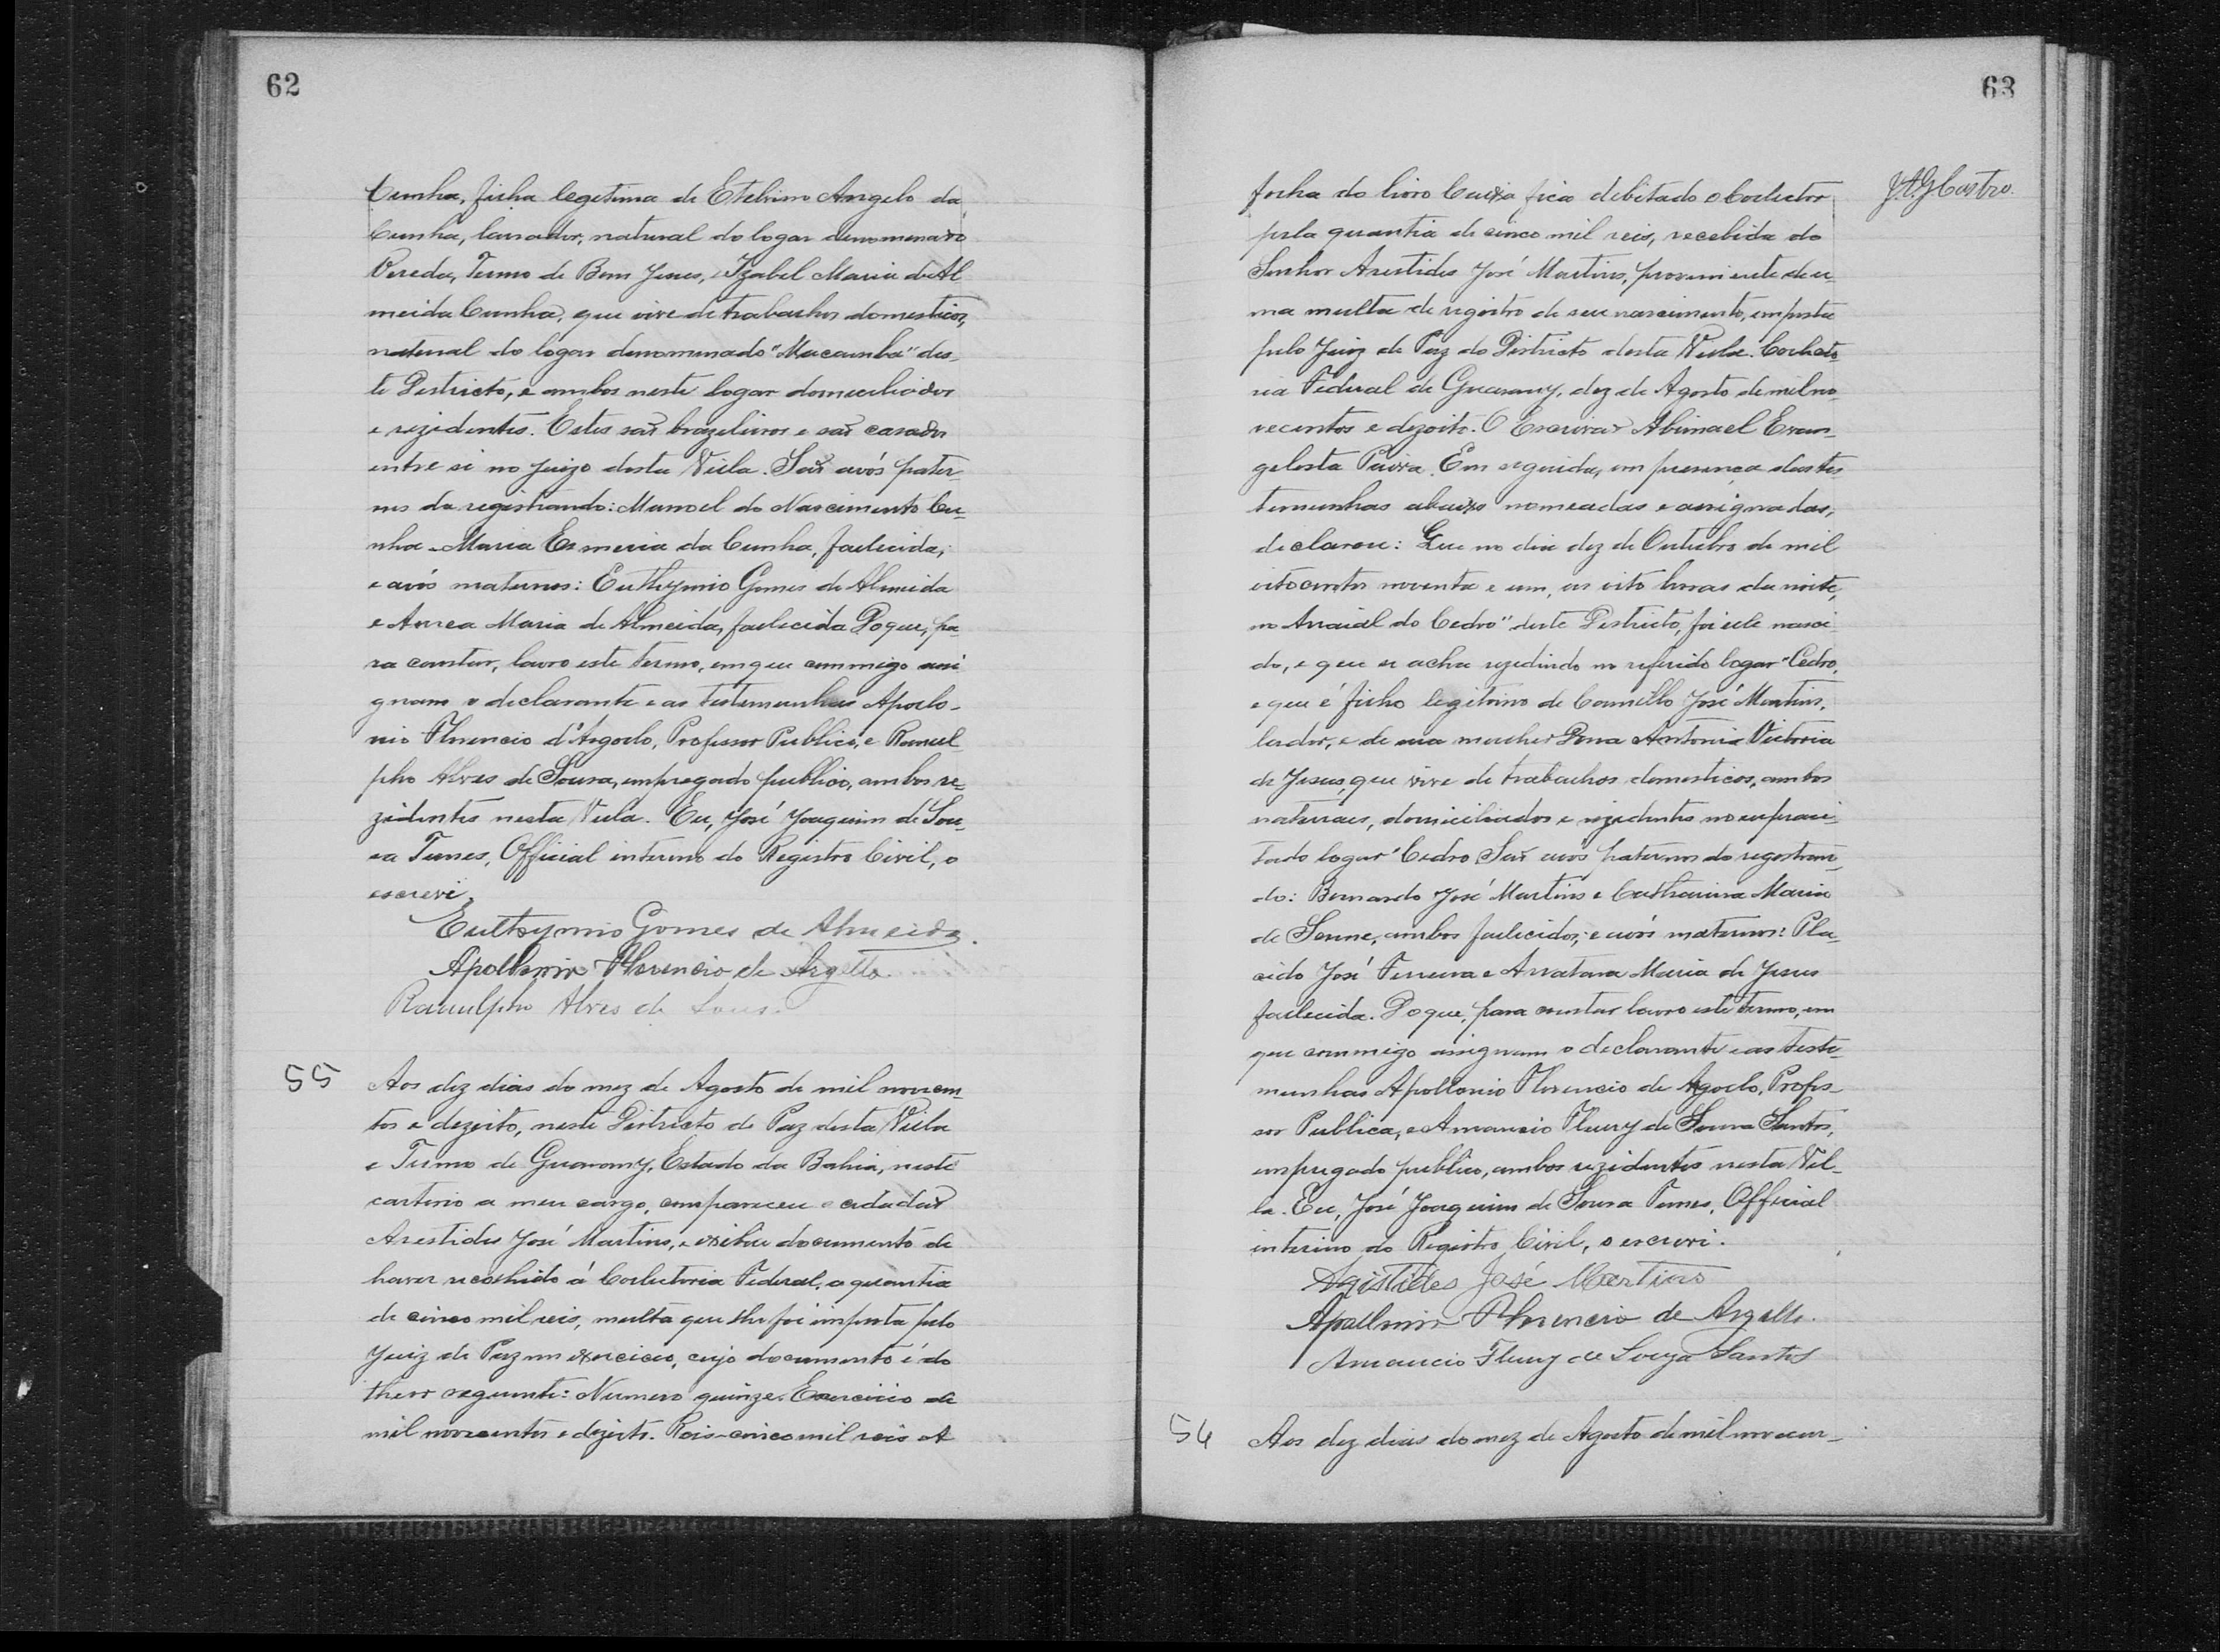 62
Cunha, filha legitima de Etelvino Angelo da
Cunha, lavrador, natural do logar denomenado
Vereda, Termo de Bom Jesus, e Izabel Maria de Al
meida Cunha, que vive de trabalhos domesticos,
natural do logar denominado "Macambã" des-
te Destricto, e ambos neste logar domeciliados
e rezidentes. Estes são brazileiros e são casados
entre si no juizo desta Villa. São avós pater
nos da registrando: Manoel do Nascimento Cu-
nha e Maria Esmeria da Cunha, fallecida;
e avós maternos: Euthymio Gomes de Almeida
e Aurea Maria de Almeida, fallecida Do que, pa-
ra constar, lavro este termo, em que commigo assi
gnam o declarante e as testemunhas Apollo-
nio Florencio d'Argollo, Professor Publico, e Ranul
pho Alves de Sousa, empregado publico, ambos re-
zidentes nesta Villa. Eu, José Joaquim de Sou-
sa Tunes, Official interino do Registro Civil, o
escrevi.
Euthymio Gomes de Almeida.
Apollonio Florencio de Argollo
Ranulpho Alves de Sousa
55
Aos dez dias do mez de Agosto de mil novecen-
tos e dezoito, neste Destricto de Paz desta Villa
e Termo de Guarany, Estado da Bahia, neste
cartorio a meu cargo, compareceu o cidadão
Arestides José Martins, e exibiu documento de
haver recolhido á Collectoria Federal, a quantia
de cinco mil reis, multa que lhe foi imposta pelo
Juiz de Paz em exercicio, cujo documento é do
theor seguinte: Numero quinze. Exercicio de
mil novecentos e dezoito. Reis-cinco mil reis A
63
J. A. G Castro.
folha do livro Caixa fica debitado o Collector
pela quantia de cinco mil reis, recebida do
Senhor Arestides José Martins, proveniente de u-
ma multa de registro de seu nascimento, imposta
pelo Juiz de Paz do Districto desta Villa. Collecto
ria Federal de Guarany, dez de Agosto de mil no-
vecentos e dezoito. O Escrivão Abimael Evan-
gelista Paiva. Em seguida, em presença das tes
temunhas abaixo nomeadas e assignadas,
declarou: Que no dia dez de Outubro de mil
oitocentos noventa e um, as oito horas da noite,
no Arraial do Cedro" deste Destricto, foi elle nasci-
do, e que se acha rezidindo no referido logar "Cedro,
e que é filho legitimo de Camillo José Martins,
e de sua mulher Dona Antonia Victoria
de Jesus, que vive de trabalhos domesticos, ambos
naturaes, domiciliados e rezidentes no supraci-
tado logar "Cedro São avós paternos do registran-
do: Bernardo José Martins e Catharina Maria
de Senne, ambos fallecidos; e avós maternos: Pla-
cido José Ferreira e Maria de Jesus
fallecida. Do que, para constar lavro este termo, em
que commigo assignam o declarante e as teste-
munhas Apollonio Florencio de Argollo, Profes-
sor Publico, e Amancio Fleury de Sousa Santos,
empregado publico, ambos rezidentes nesta Vil-
la. Eu, José Joaquim de Sousa Tunes, Official
interino do Registro Civil, o escrevi.
Aristides José Martins
Apollonio Florencio de Argollo.
Amancio Fleury de Souza Santos
56
Aos dez dias do mez de Agosto de mil novecen-